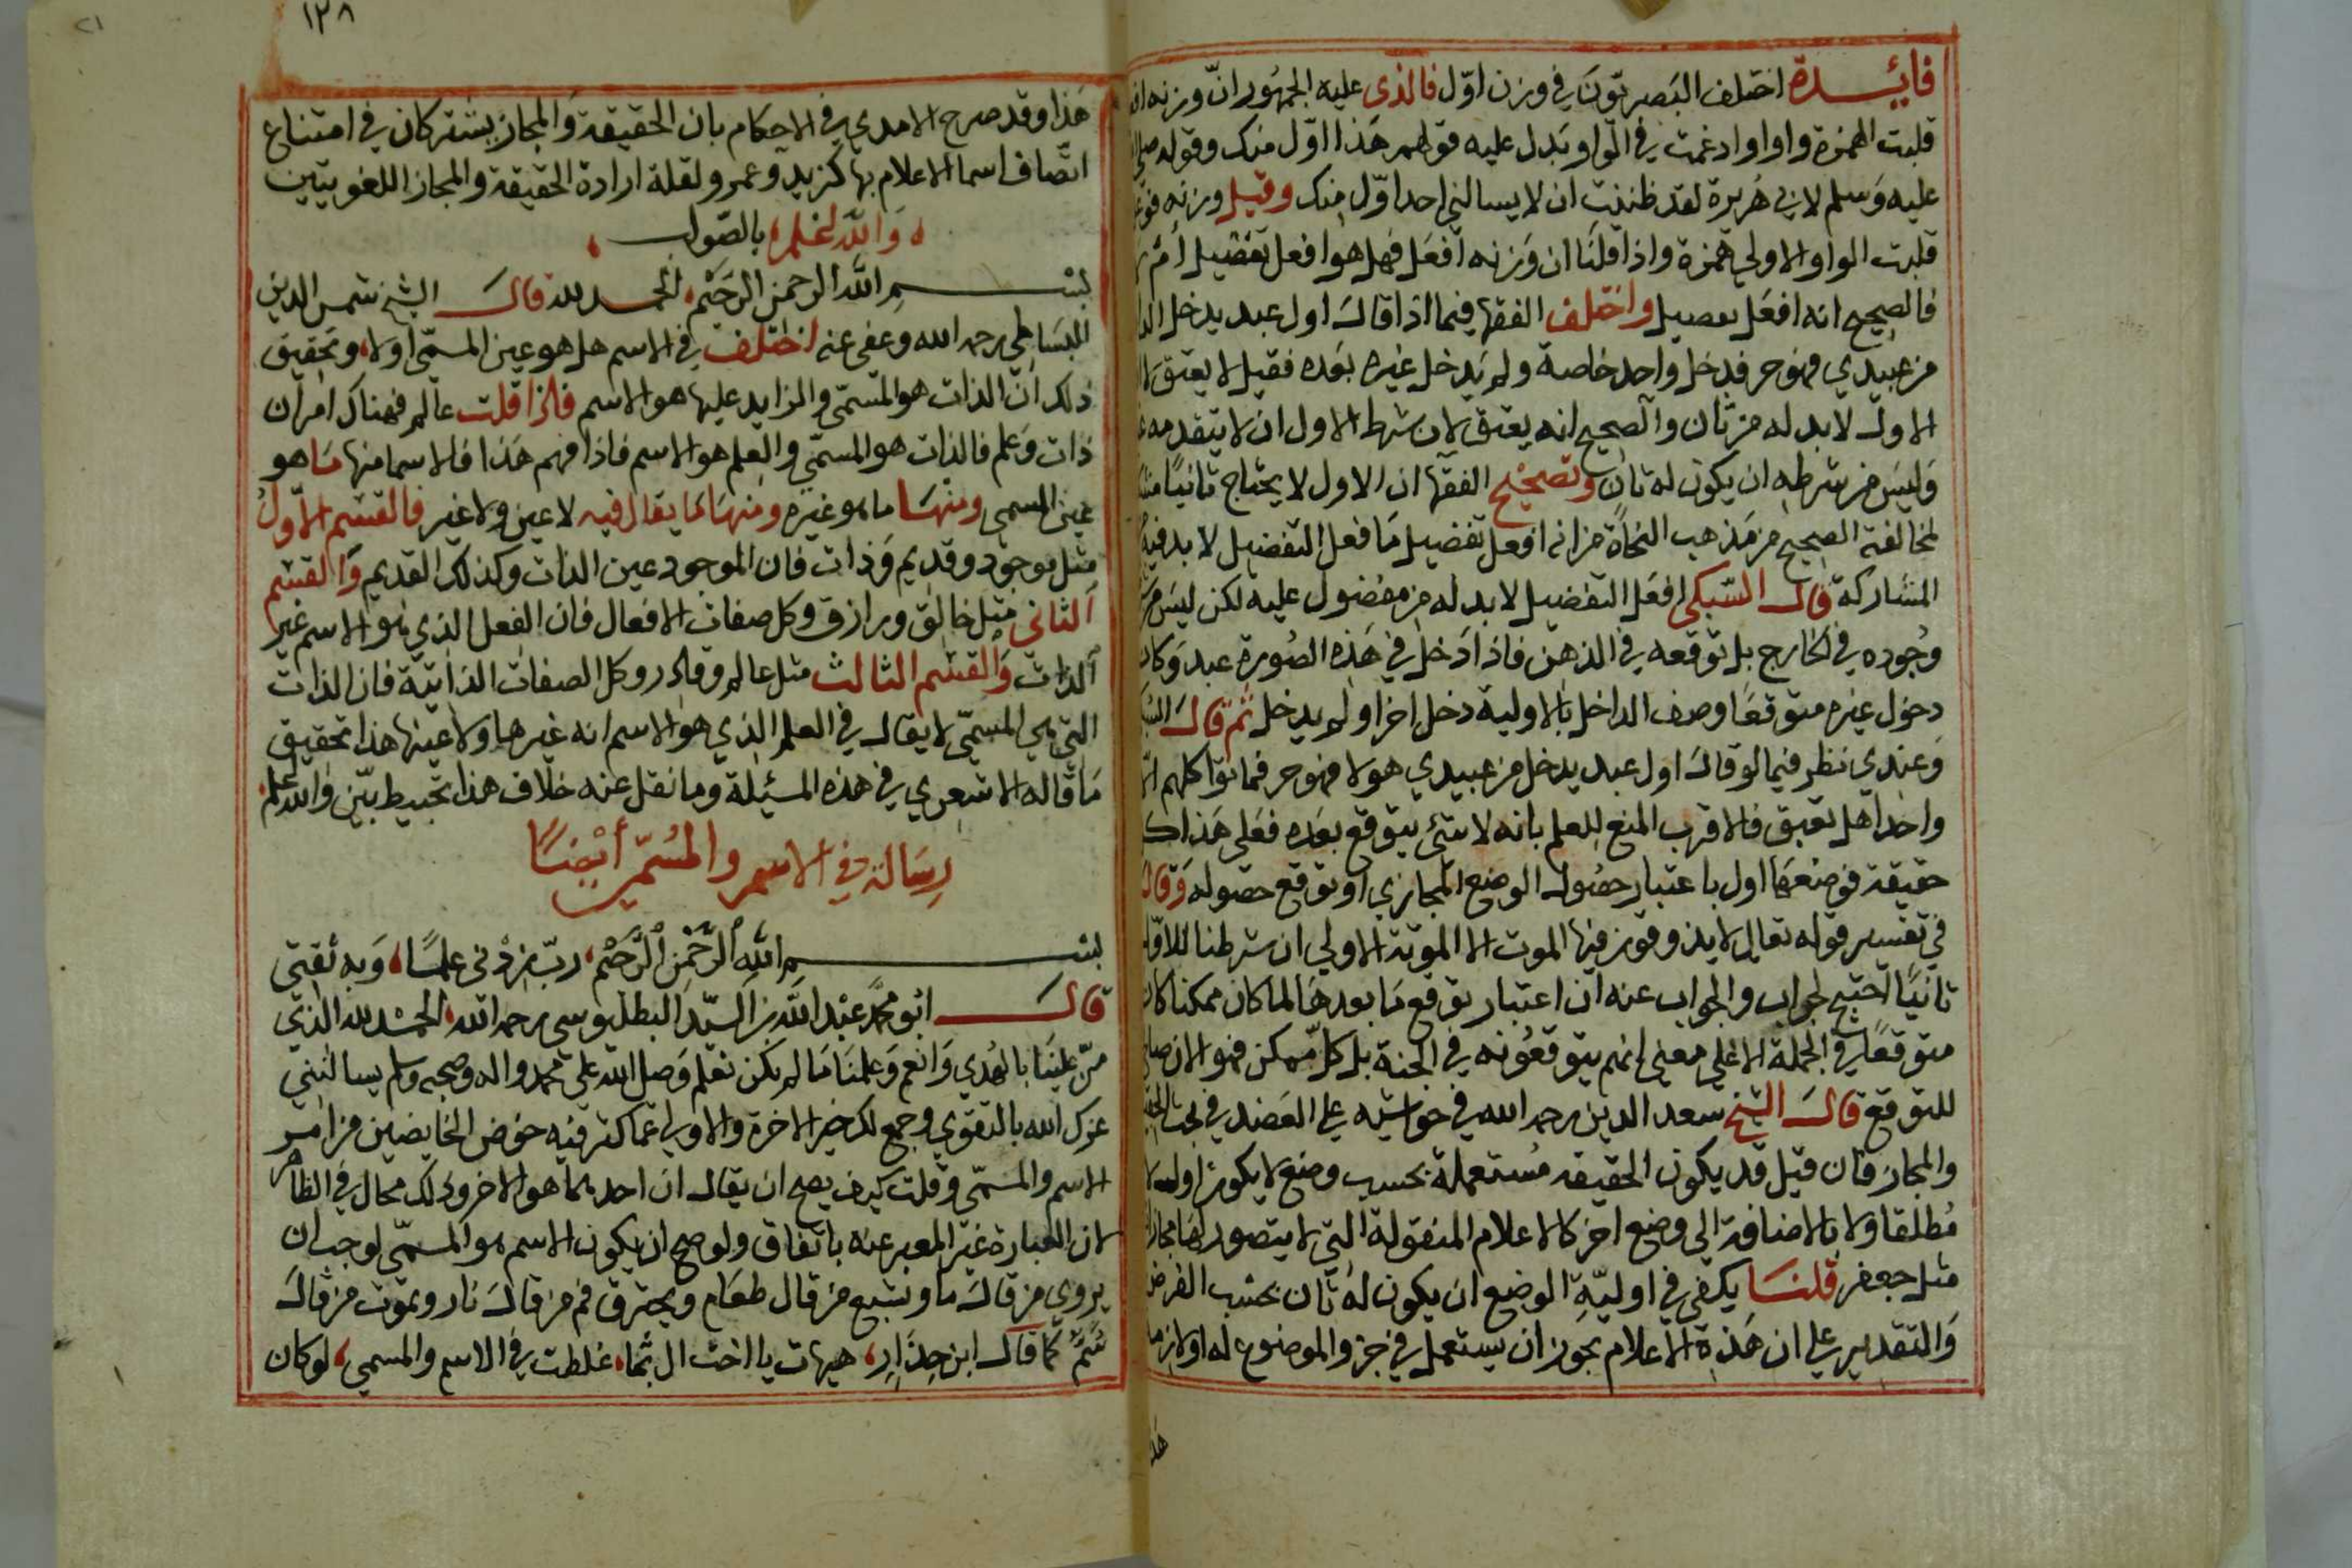 فايدة اختلف البصريون في وزن اول فالذي عليه الجمهور ان وزنه
قلبت الهمزة واوا وادغمت في الواو ويدل عليه قولهم هذا اول منك وقوله
عليه وسلم لابي هريرة لقد ظننت ان لا يسالني احد اول منك وقيل وزنه
قلبت الواو الاولي همزة واذا قلنا ان وزنه افعل فهل هو افعل تفضيل
فالصحيح انه افعل تفصيل واختلف الفقها فيما اذا قال اول عبد يدخل
من عبيدي فهو حر فدخل واحد خاصة ولم يدخل غيره بعده فقيل لا يعتق
الاول لا بد له من ثان والصحيح انه يعتق لان شرط الاول ان لا يتقدمه
وليس من شرطه ان يكون له ثان وتصحيح الفقها ان الاول لا يحتاج ثانيا
لمخالفة الصحيح من مذهب النحاة من انه افعل تفضيل فافعل التفضيل لا بد فيه
المشاركة قال السبكي افعل التفضيل لا بد له من مفضول عليه لكن ليس
وجوده في الخارج بل توقعه في الذهن فاذا دخل في هذه الصورة عبد وكان
دخول غيره متوقعا وصف الداخل بالاولية دخل اخر او لم يدخل ثم قال
وعندي نظر فيما لو قال اول عبد يدخل من عبيدي هولا فهو حر فماتوا كلهم
واحدا هل يعتق فالاقرب المنع للعلم بانه لا شئ يتوقع بعده فعلي هذا
حقيقة فوضعها اول باعتبار حصول الوضع المجازي او توقع حصوله وقال
في تفسير قوله تعالي لا يذوقون فيها الموت الا الموتة الاولي ان شرطنا للاول
ثانيا احتيج لجواب والجواب عنه ان اعتبار توقع ما بعدها لما كان ممكنا كان
متوقعا في الجملة لا علي معني انهم يتوقعونه في الجنة بل كل ممكن فهو الان
للتوقع قال الشيخ سعد الدين رحمه الله في حواشيه علي العضد في بحث
والمجاز فان قيل قد يكون الحقيقة مستعملة بحسب وضع لا يكون اول
مطلقا ولا بالاضافة الي وضع اخر كالاعلام المنقولة التي لا يتصور لها مجاز
مثل جعفر قلنا يكفي في اولية الوضع ان يكون له ثان بحسب الفرض
والتقدير علي ان هذه الاعلام يجوز ان يستعمل في جزو الموضوع له او لازم
هذا
١٢٨
هذا وقد صرح الامدي في الاحكام بان الحقيقة والمجاز يشتركان في امتناع
اتصاف اسما الاعلام بها كزيد وعمرو لقلة ارادة الحقيقة والمجاز اللغويتين
والله اعلم بالصواب
بسم الله الرحمن الرحيم الحمد لله قال الشيخ شمس الدين
البساطي رحمه الله وعفي عنه اختلف في الاسم هل هو عين المسمي او لا وتحقيق
ذلك ان الذات هو المسمي والزايد عليها هو الاسم فاذا قلت عالم فهناك امران
ذات وعلم فالذات هو المسمي والعلم هو الاسم فاذا فهم هذا فالاسما منها ما هو
عين المسمي ومنها ما هو غيره ومنها ما يقال فيه لا عين ولا غير فالقسم الاول
مثل موجود وقديم وذات فان الموجود عين الذات وكذلك القديم والقسم
الثاني مثل خالق ورازق وكل صفات الافعال فان الفعل الذي هو الاسم غير
الذات والقسم الثالث مثل عالم وقادر وكل الصفات الذاتية فان الذات
التي هي المسمي لا يقال في العلم الذي هو الاسم انه غيرها ولا عينها هذا تحقيق
ما قاله الاشعري في هذه المسئلة وما نقل عنه خلاف هذا تخبيط بين والله اعلم
رسالة في الاسم والمسمي أيضا
بسم الله الرحمن الرحيم رب زدني علما وبه ثقتي
قال ابو محمد عبد الله بن السيد البطليوسي رحمه الله الحمد لله الذي
من علينا بالهدي وانعم وعلمنا ما لم نكن نعلم وصلي الله علي محمد واله وصحبه وسلم يسالتني
عزك الله بالتقوي وجمع لك خير الاخرة والاولي عما كثر فيه خوض الخايضين من امر
الاسم والمسمي وقلت كيف يصح ان يقال ان احدهما هو الاخر وذلك محال في الظاهر
لان العبارة غير المعبر عنه باتفاق ولو صح ان يكون الاسم هو المسمي لوجب ان
يروي من قال ما ويشبع من قال طعام ويحترق فم من قال نار ويموت من قال
سم كما قال ابن جدار هيهات يا اخت ال بما غلطت في الاسم والمسمي لو كان